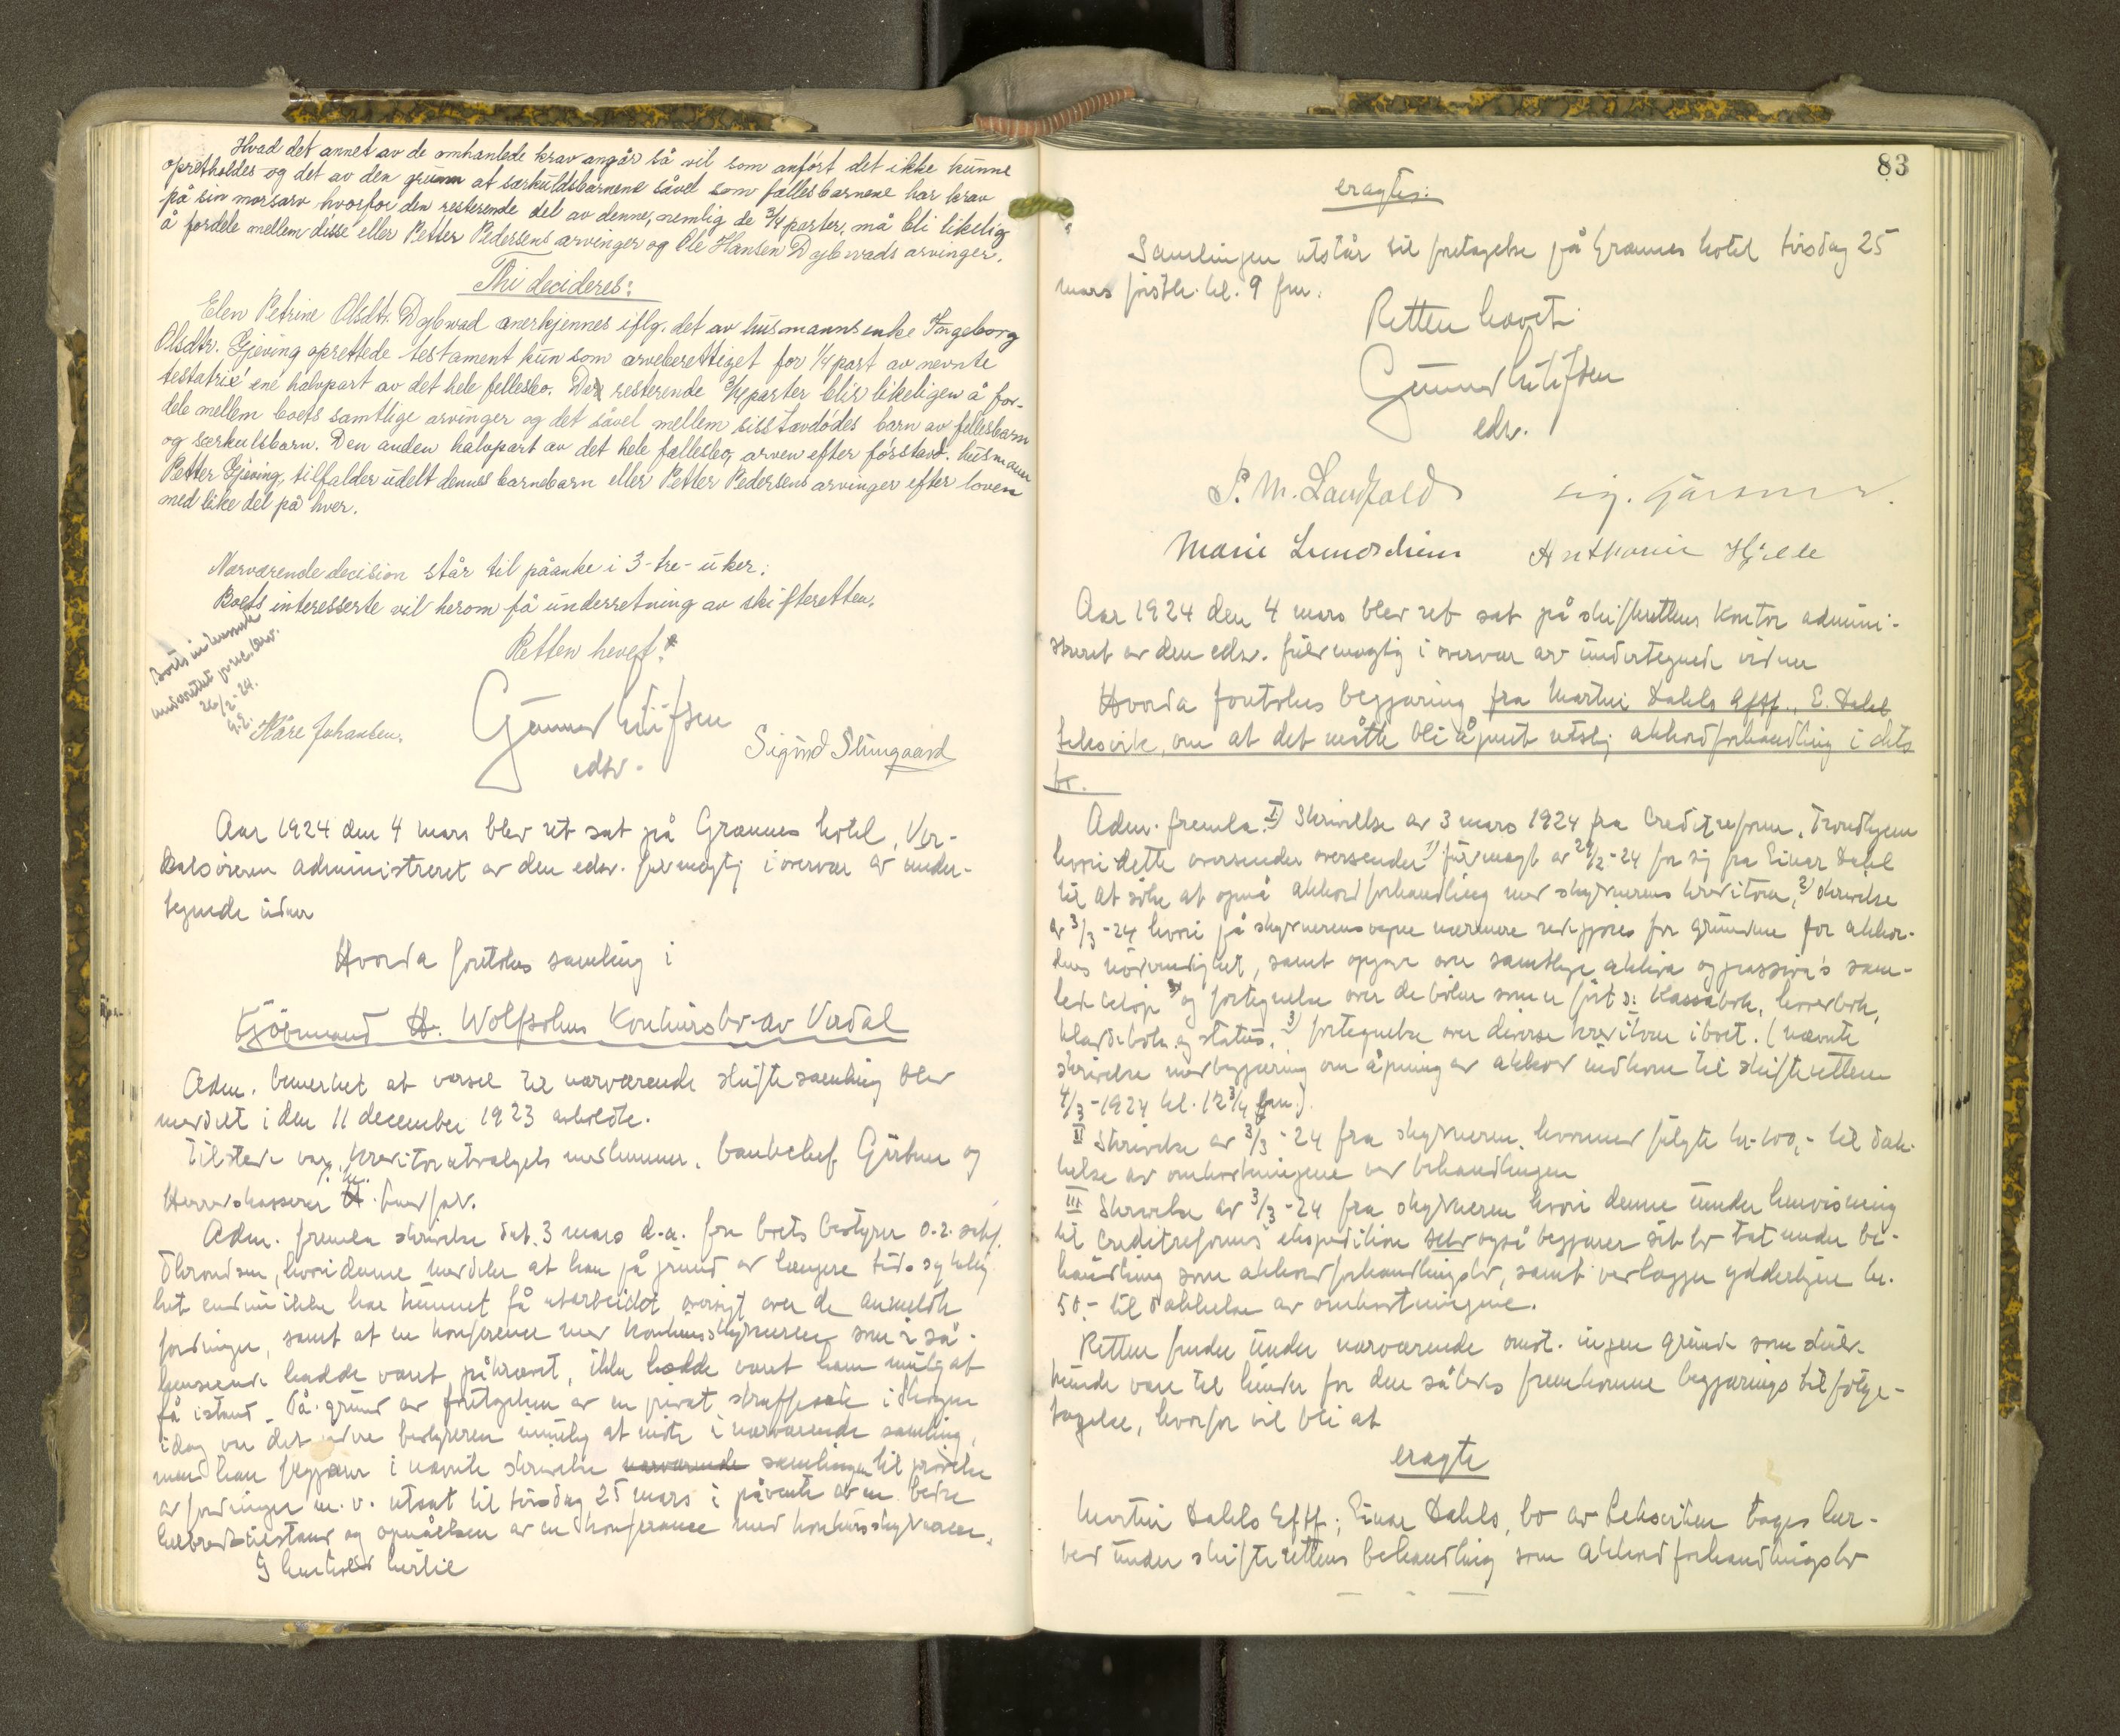 Hvad det annet av de omhanlede krav angår så vil som anført det ikke kunne
opretholdes og det av den grunn at særkuldsbarnene såvel som fællesbarnene har krav
på sin morsarv hvorfor den resterende del av denne, nemlig de 3/4 parter, må bli likelig
å fordele mellem disse eller Petter Pedersens arvinger og Ole Hansen Dajlwads arvinger.
Thi decideres:
Elen Petrine Olsdtr. Dajlwad anerkjennes iflg. det av husmannsenke Ingeborg
Olsdtr. Gjeving oprettede testament kun som arveberettiget for 1/4 part av nevnte
testatrix' ene halvpart av det hele fellesbo. Den resterende 3/4 parter blir likeligen å for-
dele mellem boets samtlige arvinger og det såvel mellem sisstavdödes barn av fellesbarn
og særkulsbarn. Den anden halvpart av det hele fællesbo, arven efter förstavd. husmann
Petter Gjeving, tilfalder udelt dennes barnebarn eller Petter Pedersens arvinger efter loven
med like del på hver.
Nærværende decision står til påanke i 3-tre-uker.
Boets interesserte vil herom få underretning av skifteretten.
Retten hevet.
Boets interesserte
underrettet pr. rek. brev.
26/2-24.
Kåre Johansen.
Gunnar
edsv.
Sigurd Stimgaard
Aar 1924 den 4 mars blev ret sat på Grannes hotel, Ver-
dalsören administreret av den edsv. fuldmægtig i overvær av under-
tegnede vidner
Hvorda foretokes samling i
Kjöbmand H. Wolfsohns Konkursbo av Verdal
Adm. bemerket at varsel til nærværende skiftesamling blev
meddelt i den 11 december 1923 anholdte.
Tilstede var kreditorutvalgets medlemmer, bankchef Gürtner og
Herredskasserer P. M. Landfald.
Adm. fremla skrivelse dat. 3 mars d.a. fra boets bestyrer o.r. sakf.
Thorondsen, hvori denne meddeler at han på grund av længere tids sykelig-
het endnu ikke har kunnet få utarbeidet oversigt over de anmeldte
fordringer, samt at en konferance med konkursskyldneren som i så-
henseende hadde været påkrævet, ikke hadde været ham mulig at
få istand. På grund av foretagelsen av en privat straffesak i Skogn
idag var det videre bestyreren umulig at möte i nærværende samling,
men han begjærer i nævnte skrivelse nærværende samlingen til prövelse
av fordringer m.v. utsat til tirsdag 25 mars i påvente av en bedre
helbredstilstand og opnåelsen av en konferance med konkursskyldneren.
I henhold hertil
83
eragtes:
Samlingen utstår til foretagelse på Grannes hotel tirsdag 25
mars förstk. kl. 9 fm.
Retten hævet.
Gunnar
edsv.
P. M. Landfald
Sig. Gürtner.
Marie
Anthonie Hjelle
Aar 1924 den 4 mars blev ret sat på skifterettens kontor admini-
streret av den edsv. fuldmægtig i overvær av undertegnede vidner
Hvorda foretokes begjæring fra Martin Dahls Eftf., E. Dahl
Leksvik, om at det måtte bli åpnet utslig akkordforhandling i dets
bo.
Adm. fremla. I) Skrivelse av 3 mars 1924 fra Creditreform, Trondhjem
hvori dette oversender oversender 1) fuldmagt av 29/2-24 for sig fra Einar Dahl
til at söke at opnå akkordforhandling med skyldnerens kreditorer, 2) skrivelse
av 3/3-24 hvori på skyldnerens vegne nærmere redegjöres for grundene for akkor-
dens nödvendighet, samt opgave over samtlige aktiva og passiva's sam-
lede belöp og fortegnelse over de böker som er fört s: kassabok, hovedbok,
kladdebok og status, 3) fortegnelse over diverse kreditorer i boet. (nævnte
skrivelse med begjæring om åpning av akkord indkom til skifteretten
4/3-1924 kl. 12 3/4 fm.).
II Skrivelse av 3/3-24 fra skyldneren, hvormed fulgte kr. 100,- til dæk-
kelse av omkostningene ved behandlingen
III Skrivelse av 3/3-24 fra skyldneren hvori denne under henvisning
til Creditreforms ekspedition selv også begjærer sit bo tat under be-
handling som akkordforhandlingsbo, samt vedlægger ydderligere kr.
50,- til dækkelse av omkostningene.
Retten finder under nærværende omst. ingen grunde som skulde
kunde være til hinder for den således fremkomne begjærings tilfölge-
tagelse, hvorfor vil bli at
eragte
Martin Dahls Eftf; Einar Dahls, bo av Leksviken tages her-
ved under skifterettens behandling som akkordforhandlingsbo